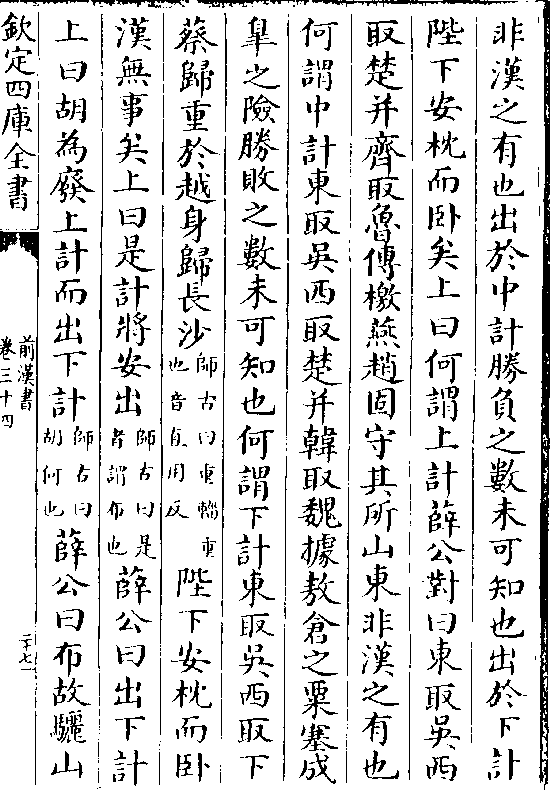 非漢之有也出於中計勝負之數未可知也出於下計
陛下安枕而卧矣上曰何謂上計薛公對曰東取吳西
取楚并齊取魯傳檄燕趙固守其所山東非漢之有也
何謂中計東取吳西取楚并韓取魏據敖倉之粟塞成
臯之險勝敗之數未可知也何謂下計東取吳西取下
蔡歸重於越身歸長沙師古曰重輜重也音直用反陛下安枕而卧
漢無事矣上曰是計將安出師古曰是者謂布也薛公曰出下計
上曰胡為廢上計而出下計師古曰胡何也薛公曰布故驪山
欽定四庫全書
前漢書
卷三十四
二十七